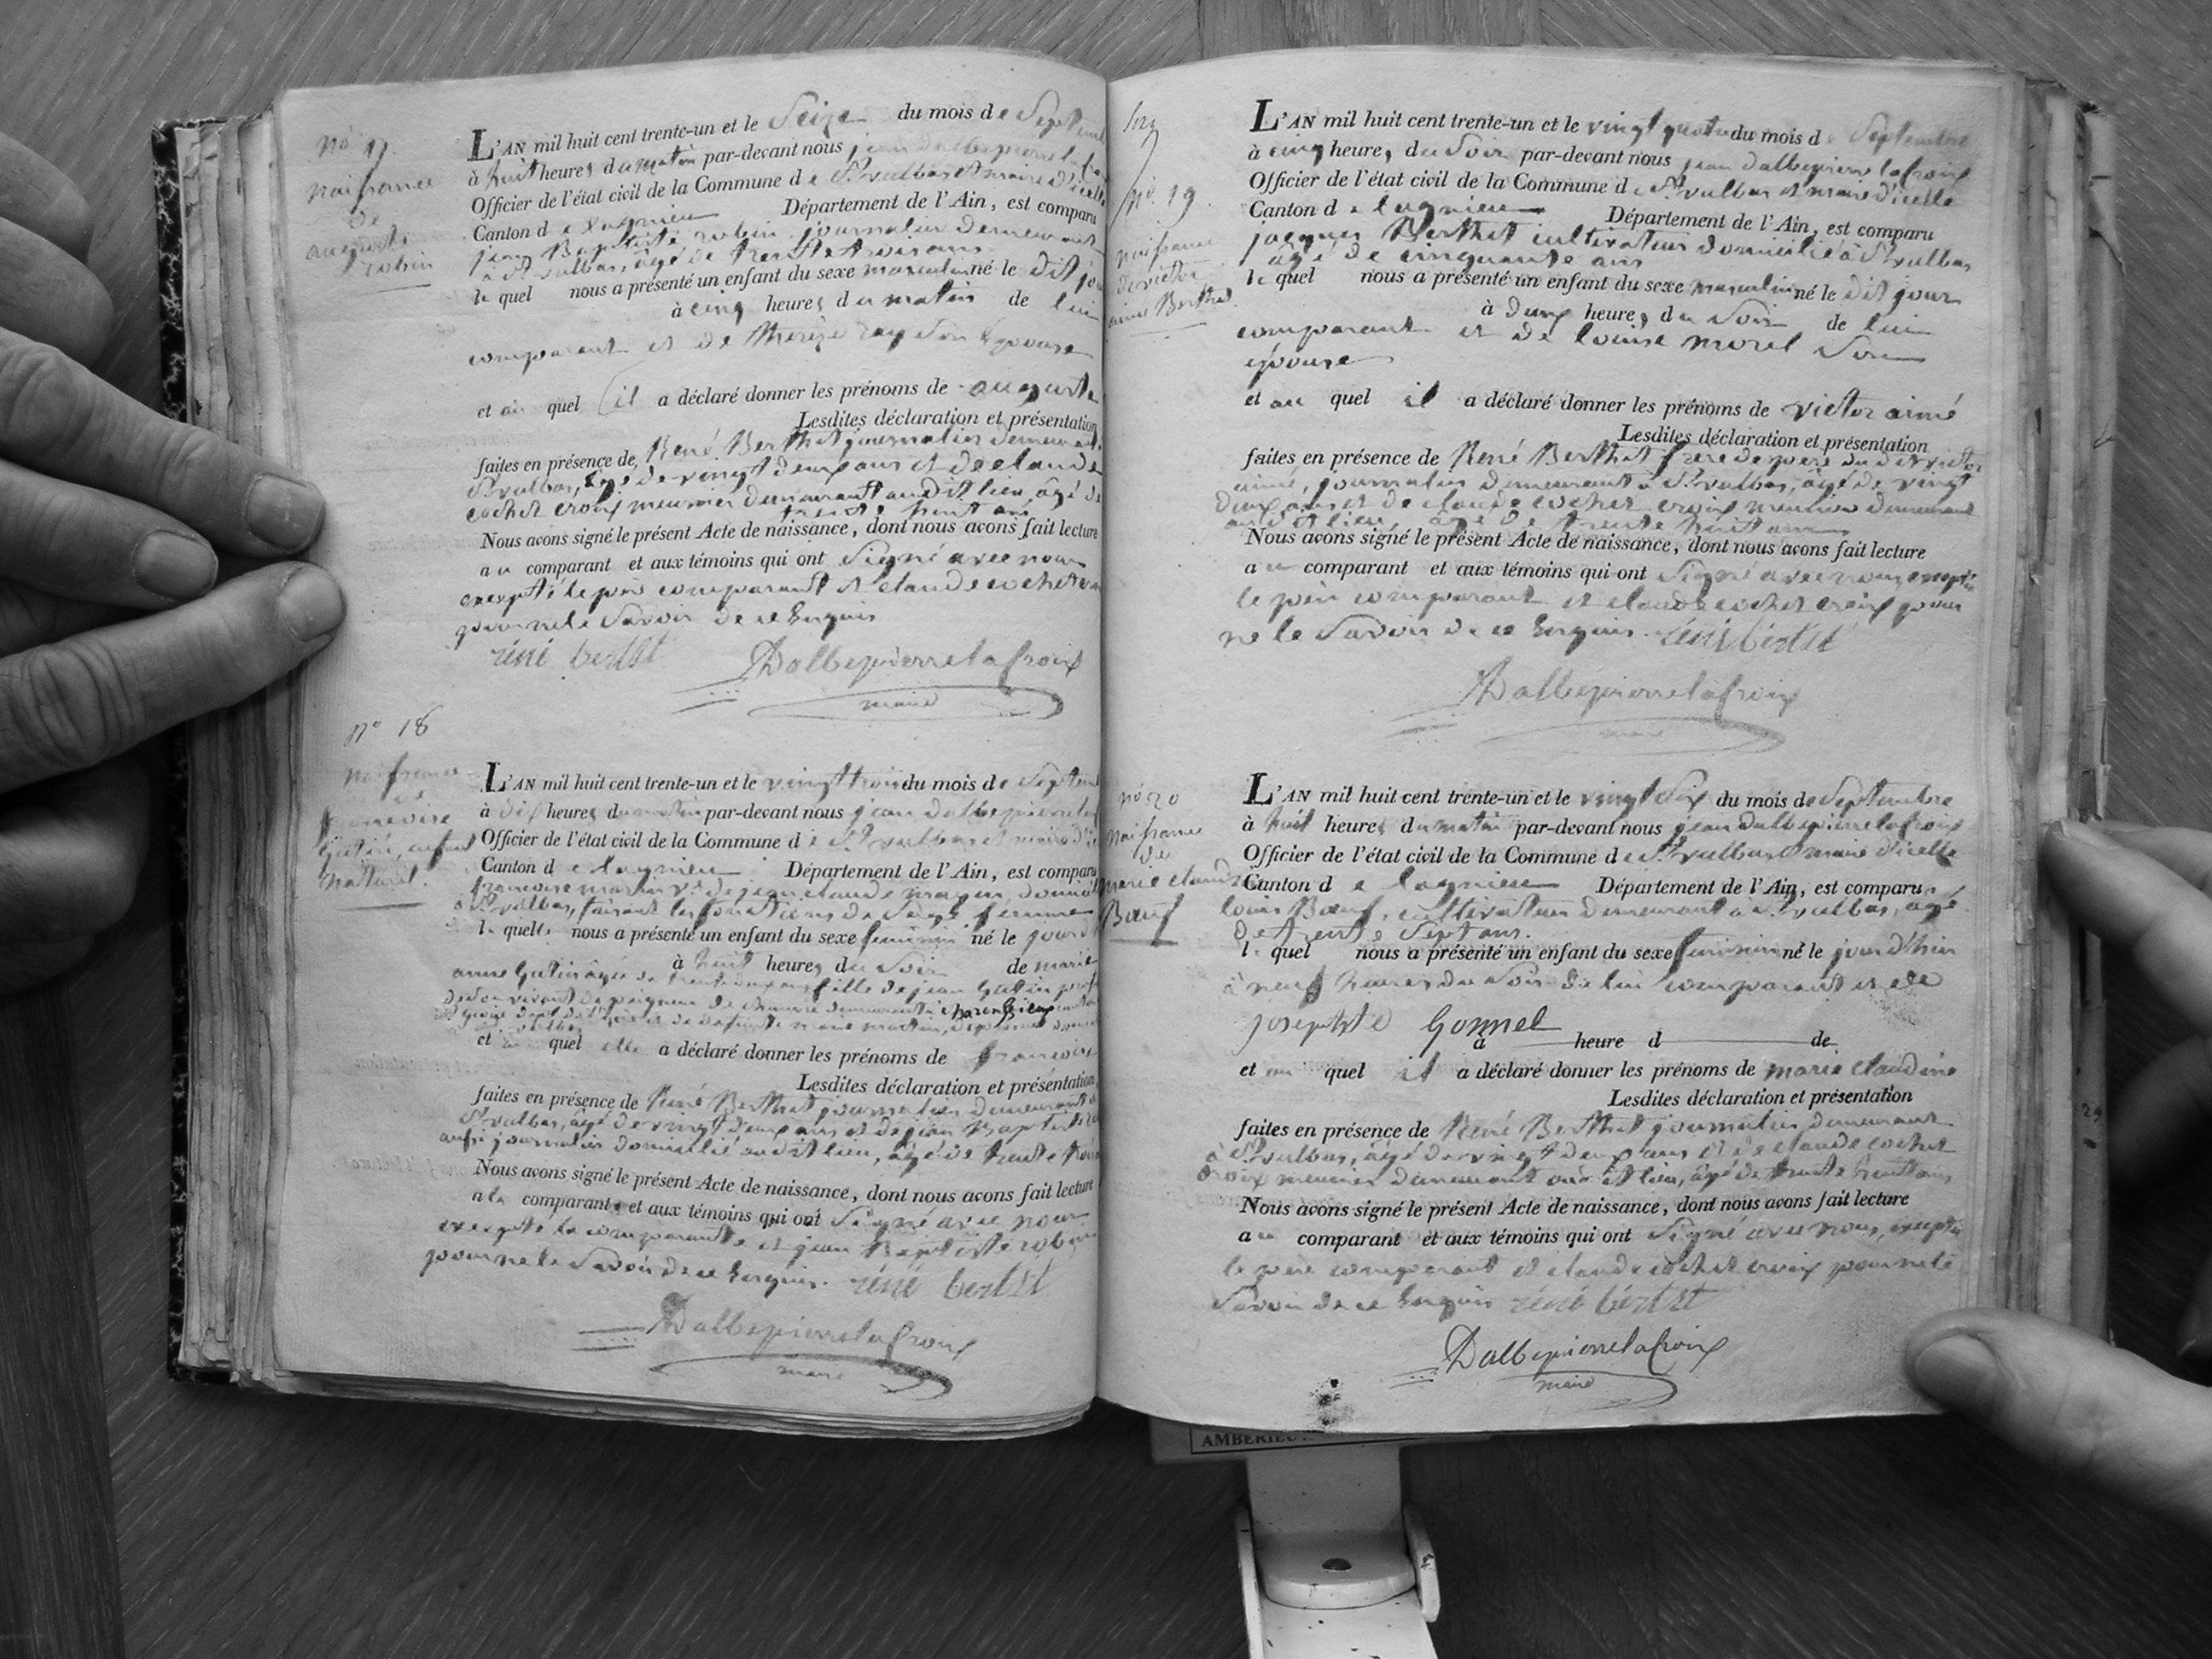 no 17.
naissance
de
auguste
robin
L'AN mil huit cent trente-un et le Seize du mois de Septembre
à huit heures du matin par-devant nous jean dalbepierre lacroix
Officier de l'état civil de la Commune de St vulbas et maire d'icelle
Canton de Lagnieu Département de l'Ain, est comparu
jean Baptiste robin journalier demeurant
à St vulbas, âgé de trente trois ans
le quel nous a présenté un enfant du sexe masculin né le dit jour
à cinq heures du matin de lui
comparant et de therèze ray Son Epouse
et au quel il a déclaré donner les prénoms de auguste
Lesdites déclaration et présentation
faites en présence de René Berthet journalier demeurant
St vulbas, âgé de vingt deux ans et de claude
cochet croix meunier demeurant au dit lieu, âgé de
trente huit ans
Nous avons signé le présent Acte de naissance, dont nous avons fait lecture
au comparant et aux témoins qui ont Signé avec nous
excepté le père comparant et claude cochet
pour ne le Savoir de ce Enquis
réné bertet Dalbepierrelacroix
maire
no 18
naissance
de
francoise
Gutin, enfant
naturel.
L'AN mil huit cent trente-un et le vingt trois du mois de Septembre
à dix heures du matin par-devant nous jean dalbepierre
Officier de l'état civil de la Commune de St vulbas et maire
Canton de lagnieu Département de l'Ain, est comparu
francoise ve de jean claude
à St vulbas, faisant les fonctions de Sage femme
le quelle nous a présenté un enfant du sexe feminin né le jour
à huit heures du Soir de marie
anne Gutin âgée de trente deux ans fille de jean Gutin
de Son vivant peigneur de chanvre demeurant à charancieux
et quel elle a déclaré donner les prénoms de francoise
Lesdites déclaration et présentation
faites en présence de René Berthet journalier demeurant
St vulbas, âgé de vingt deux ans et de jean Baptiste
aussi journalier domicilié au dit lieu, âgé de trente trois
Nous avons signé le présent Acte de naissance, dont nous avons fait lecture
a la comparante et aux témoins qui ont Signé avec nous
excepté la comparante et jean Baptiste robin
pour ne le Savoir de ce Enquis. réné bertet
Dalbepierrelacroix
maire
no 19
naissance
de victor
aimé Berthet
L'AN mil huit cent trente-un et le vingt quatre du mois de Septembre
à cinq heures du Soir par-devant nous jean dalbepierre lacroix
Officier de l'état civil de la Commune de St vulbas et maire d'icelle
Canton de lagnieu Département de l'Ain, est comparu
jacques Berthet cultivateur domicilié à St vulbas
âgé de cinquante ans
le quel nous a présenté un enfant du sexe masculin né le dit jour
à deux heures du Soir de lui
comparant et de louise morel Son
épouse
et au quel il a déclaré donner les prénoms de victor aimé
Lesdites déclaration et présentation
faites en présence de René Berthet frere de père du dit victor
aimé, journalier demeurant à St vulbas, âgé de vingt
deux ans et de claude cochet croix meunier demeurant
au dit lieu, âgé de trente huit ans
Nous avons signé le présent Acte de naissance, dont nous avons fait lecture
au comparant et aux témoins qui ont Signé avec nous excepté
le père comparant et claude cochet croix pour
ne le Savoir de ce Enquis. réné bertet
Dalbepierrelacroix
maire
no 20
naissance
de
marie claudine
Bœuf
L'AN mil huit cent trente-un et le vingt Six du mois de Septembre
à huit heures du matin par-devant nous jean dalbepierre lacroix
Officier de l'état civil de la Commune de St vulbas et maire d'icelle
Canton de lagnieu Département de l'Ain, est comparu
louis Bœuf, cultivateur demeurant à St vulbas, âgé
de trente Sept ans.
le quel nous a présenté un enfant du sexe feminin né le jour d'hier
à neuf heures du Soir de lui comparant et de
josephte Gonnel
à heure d de
et au quel il a déclaré donner les prénoms de marie claudine
Lesdites déclaration et présentation
faites en présence de René Berthet journalier demeurant
à St vulbas, âgé de vingt deux ans et de claude cochet
croix meunier demeurant au dit lieu, âgé de trente huit ans
Nous avons signé le présent Acte de naissance, dont nous avons fait lecture
au comparant et aux témoins qui ont Signé avec nous, excepté
le père comparant et claude cochet croix pour ne le
Savoir de ce Enquis réné bertet
Dalbepierrelacroix
maire